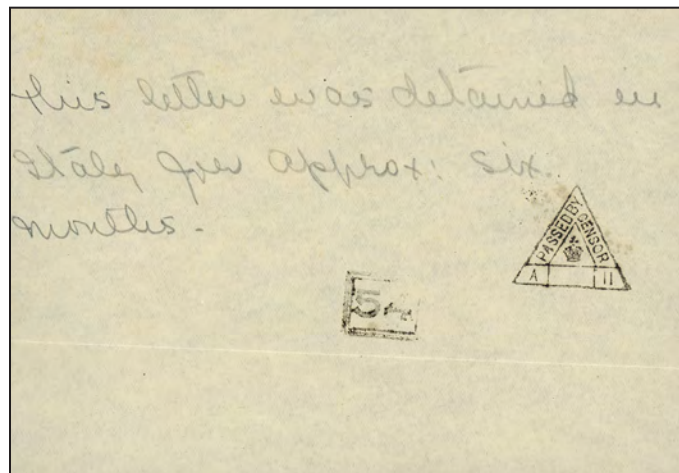 This letter was detained in
Italy for approx: six
months.
PASSED BY
CENSOR
A 11
54